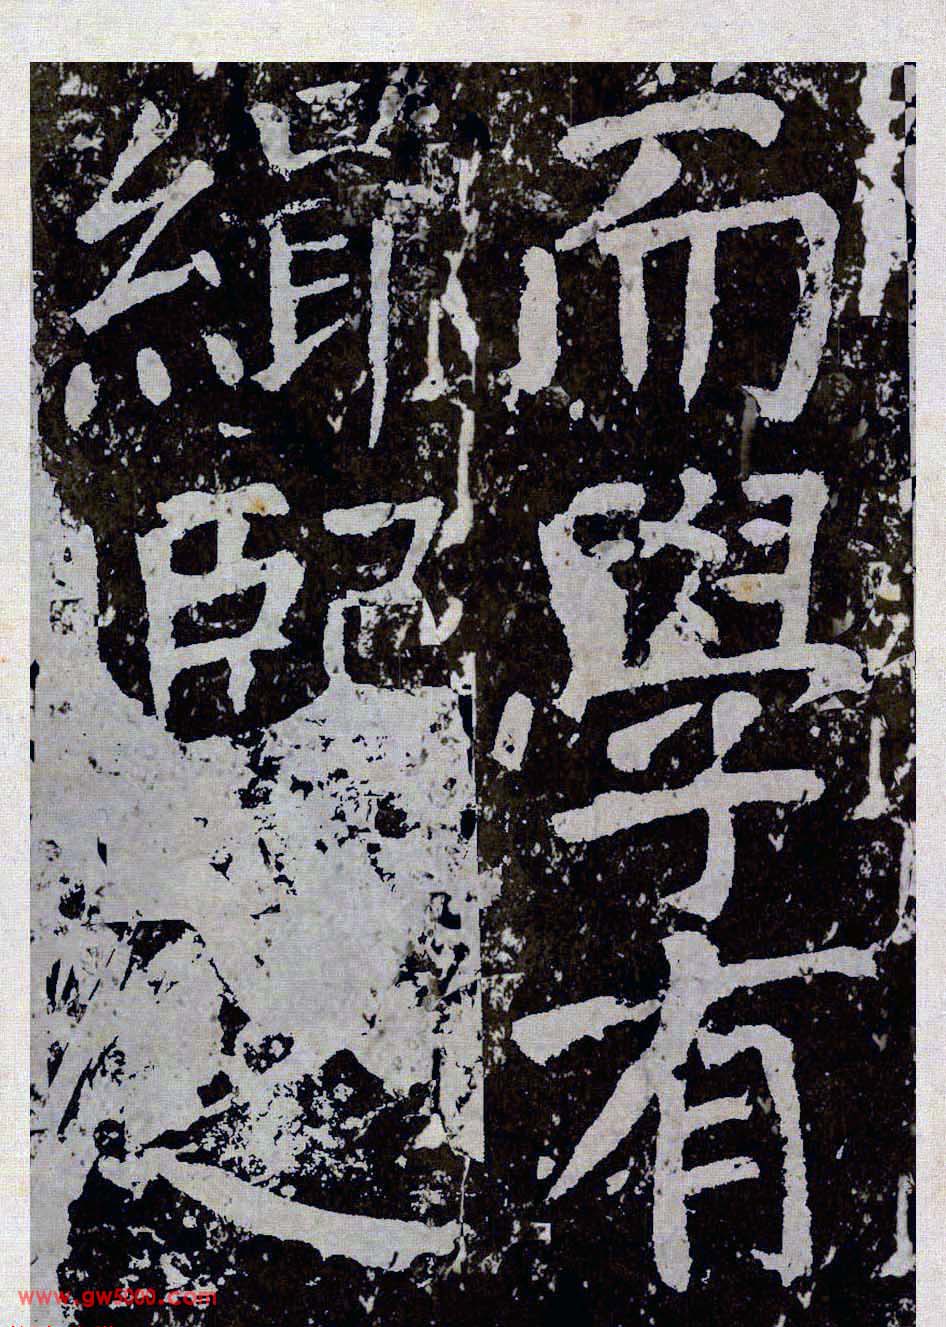 而學有
緝熙
www.gw5000.com